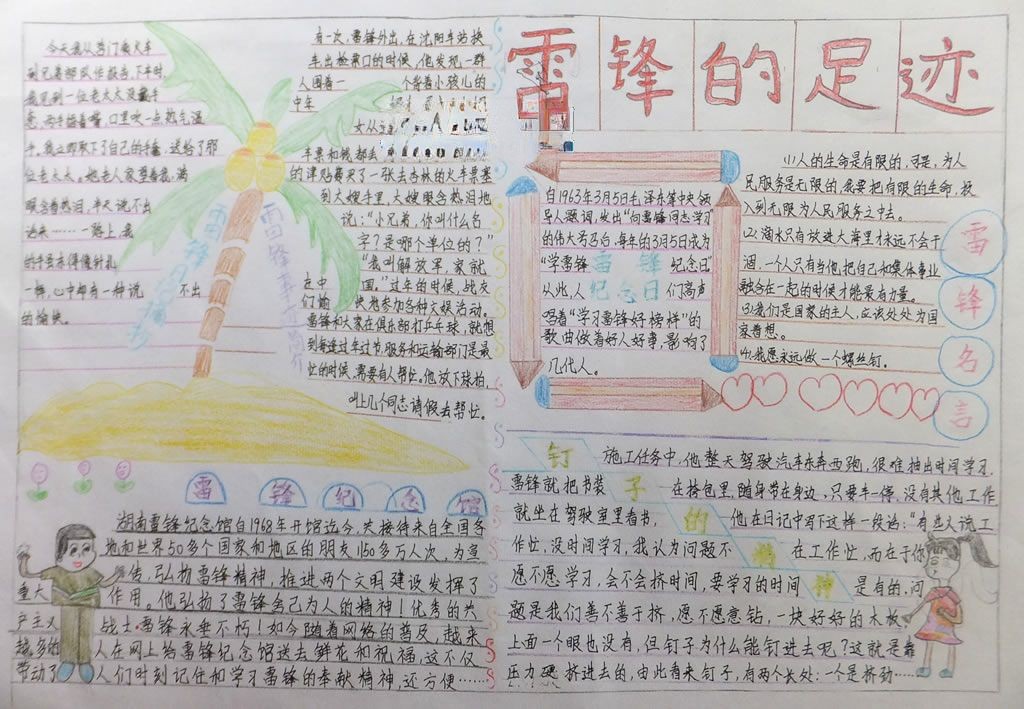 雷锋的足迹
今天我从营门乘火车
到兄弟部队作报告，下车时，
我见到一位老太太没戴手
套，两手捂着嘴，口里吹一点热气温
手。我立即取下了自己的手套，送给了那
位老太太。她老人家望着我，满
眼含着热泪，半天说不出
话来……一路上，我
的手虽冻得像针扎
一样，心中却有一种说 不出
的愉快。
雷锋日记摘抄
雷锋事迹简介
有一次，雷锋外出，在沈阳车站换
车出检票口的时候，他发现一群
人围着一 个背着小孩儿的
中年
女从
车票和钱都丢
的津贴费买了一张去吉林的火车票塞
到大嫂手里，大嫂眼含热泪地
说："小兄弟，你叫什么名
字？是哪个单位的？"
"我叫解放军，家就
在中 国。"过年的时候，战友
们愉 快地参加各种文娱活动。
雷锋和大家在俱乐部打乒乓球，就想
到每逢过年过节，服务和运输部门是最
忙的时候，需要有人帮忙。他放下球拍，
叫上几个同志请假去帮忙。
自1963年3月5日毛泽东等中央领
导人题词，发出"向雷锋同志学习"
的伟大号召后，每年的3月5日成为
"学雷锋 雷锋 纪念日"
从此，人 纪念日 们高声
唱着"学习雷锋好榜样"的
歌曲做着好人好事，影响了
几代人。
(1)人的生命是有限的，可是，为人
民服务是无限的，我要把有限的生命，投
入到无限为人民服务之中去。
(2)滴水只有放进大海里才永远不会干
涸，一个人只有当他把自己和集体事业
融合在一起的时候才能最有力量。
(3)我们是国家的主人，应该处处为国
家着想。
(4)我愿永远做一个螺丝钉。
雷锋名言
雷锋纪念馆
湖南雷锋纪念馆自1968年开馆迄今，共接待来自全国各
地和世界50多个国家和地区的朋友1150多万人次，为宣
传，弘扬雷锋精神，推进两个文明建设发挥了
重大 作用。他弘扬了雷锋舍己为人的精神！优秀的共
产主义 战士雷锋永垂不朽！如今随着网络的普及，越来
越多的 人在网上给雷锋纪念馆送去鲜花和祝福，这不仅
带动了 人们时刻记住和学习雷锋的奉献精神，还方便……
钉子的精神
施工任务中，他整天驾驶汽车东奔西跑，很难抽出时间学习，
雷锋就把书装 在挎包里，随身带在身边，只要车一停，没有其他工作，
就坐在驾驶室里看书， 他在日记中写下这样一段话："有些人说工
作忙，没时间学习，我认为问题不 在工作忙，而在于你
愿不愿学习，会不会挤时间，要学习的时间 是有的，问
题是我们善不善于挤，愿不愿意钻，一块好好的木板，
上面一个眼也没有，但钉子为什么能钉进去呢？这就是靠
压力硬挤进去的，由此看来钉子，有两个长处：一个是挤劲……